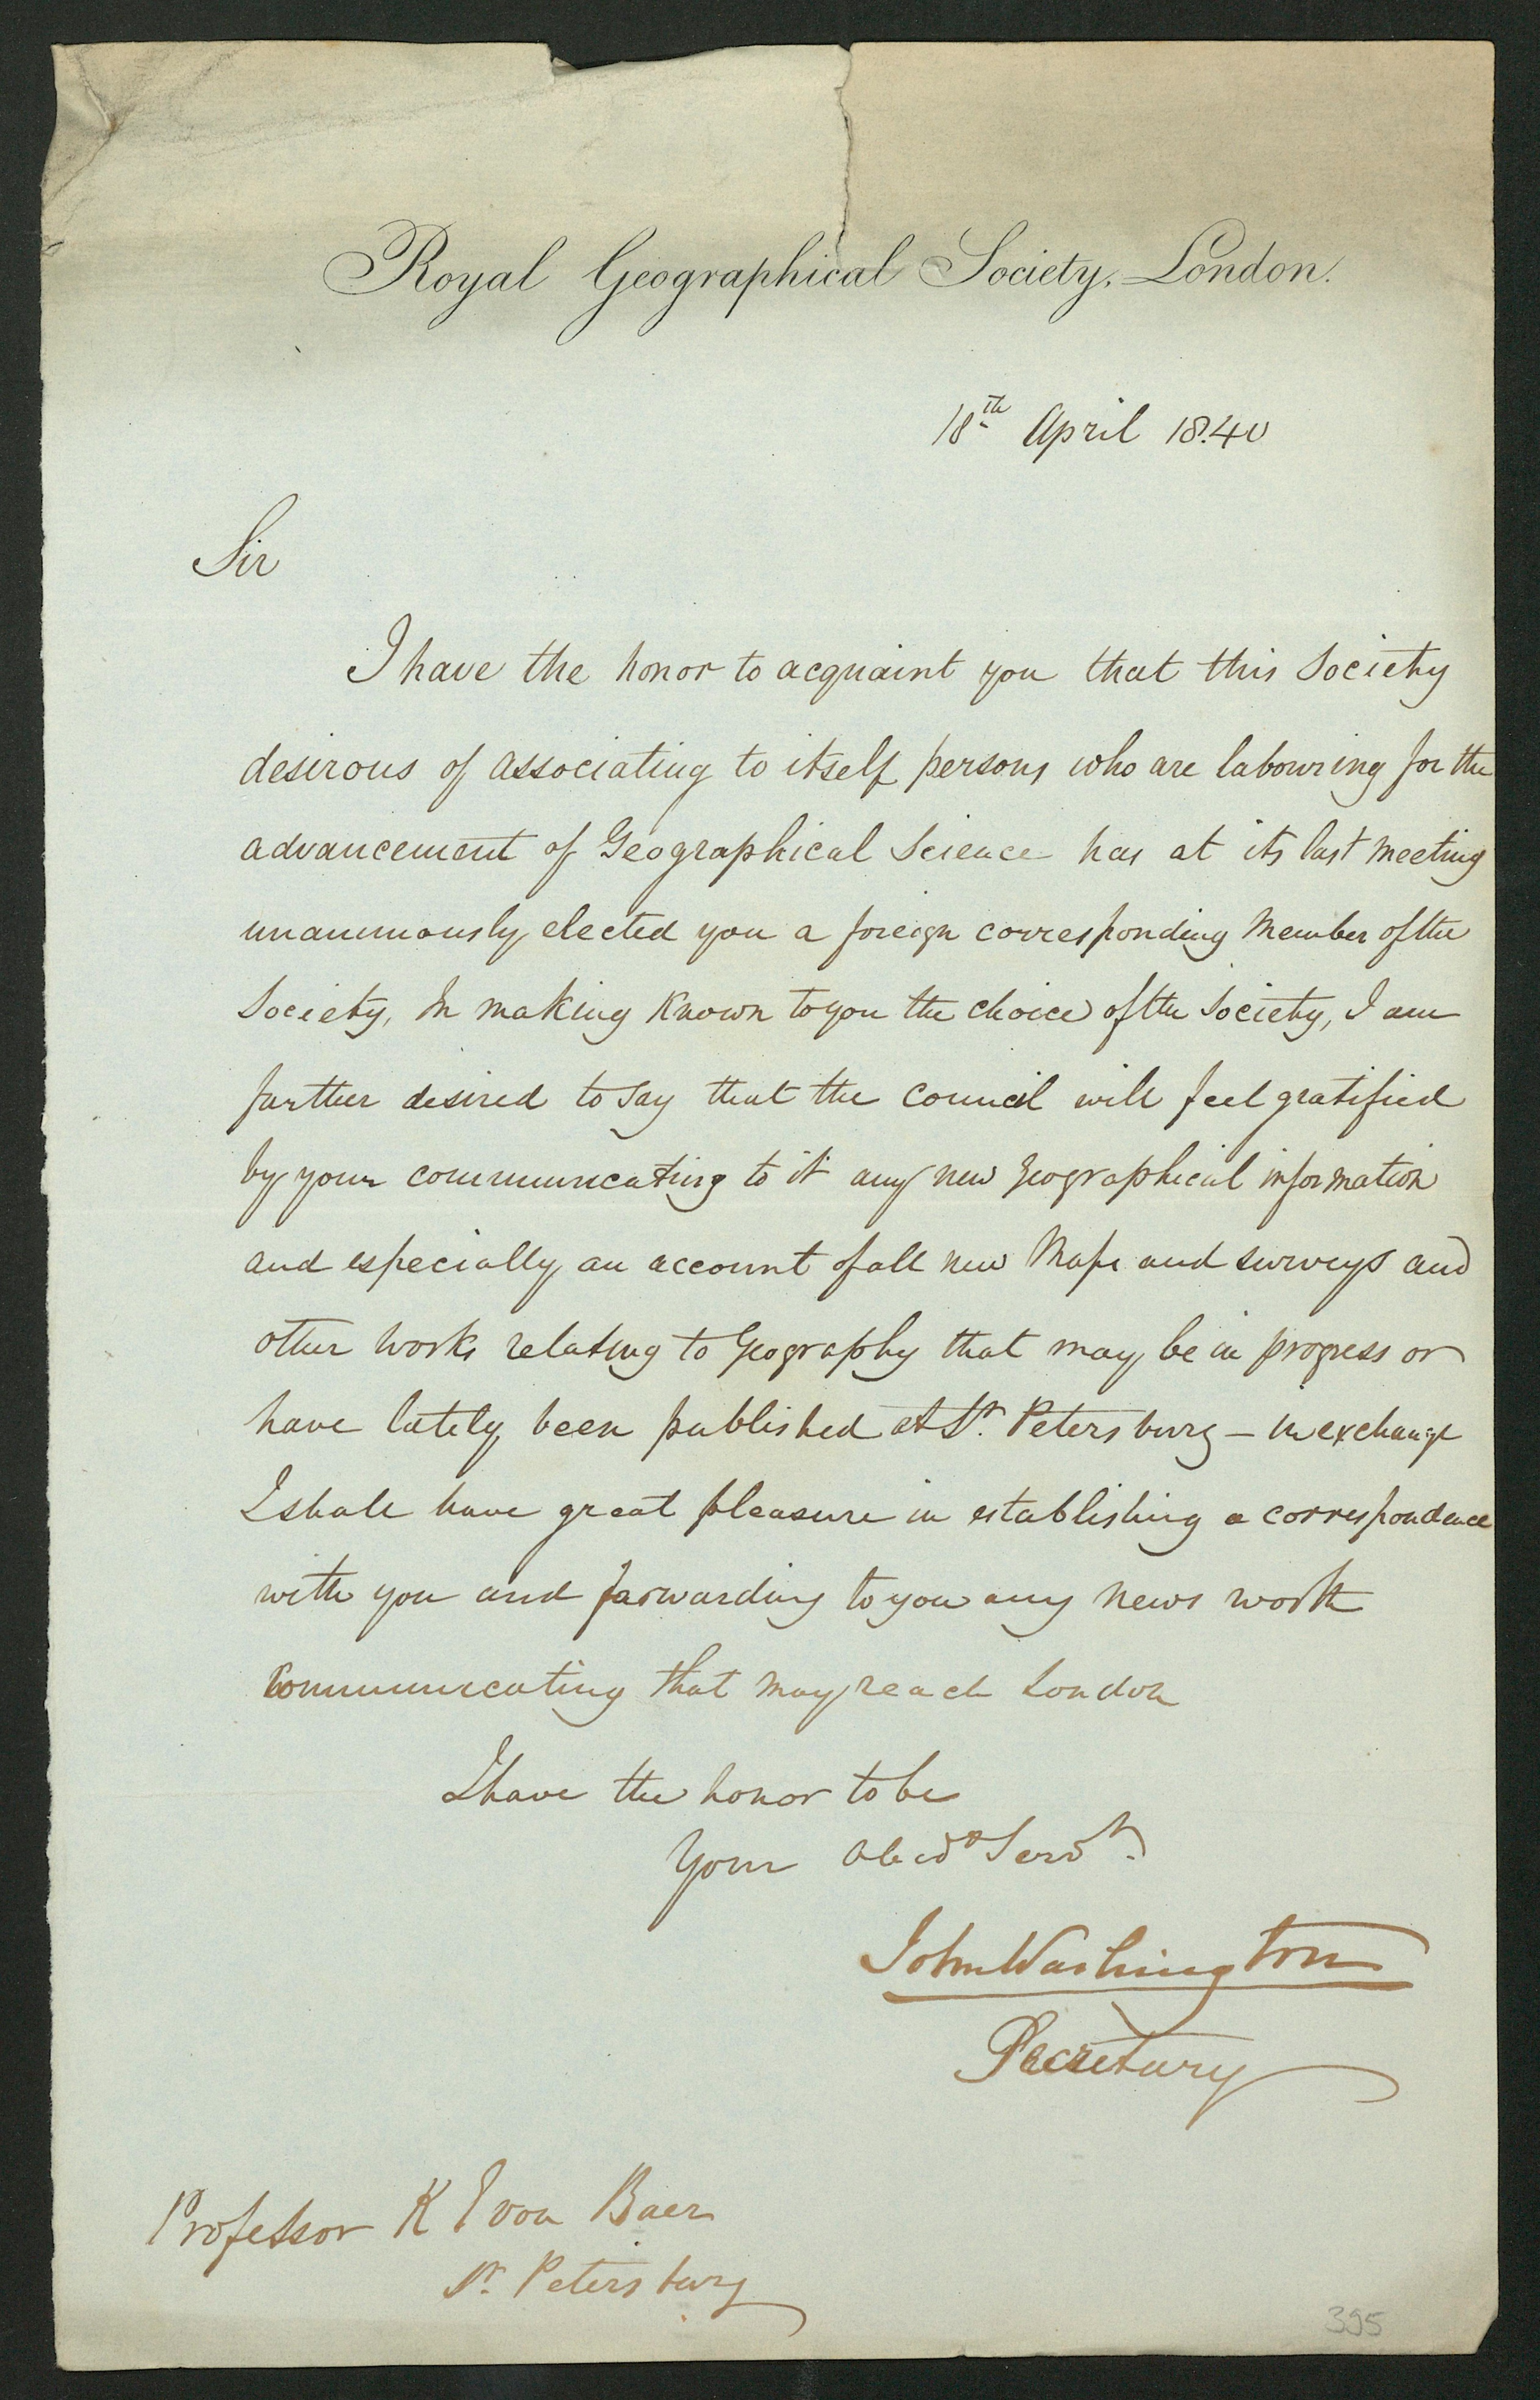 Royal Geographical Society, London.
18th April 1840
Sir
I have the honor to acquaint you that this Society
desirous of associating to itself persons who are labouring for the
advancement of Geographical Science has at its last meeting
unanimously elected you a foreign corresponding Member of the
Society, In making known to you the choice of the Society, I am
further desired to say that the Council will feel gratified
by your communicating to it any new geographical information
and especially an account of all new Maps and surveys and
other works relating to Geography that may be in progress or
have lately been published at St. Petersburg – in exchange
I shall have great pleasure in establishing a correspondence
with you and forwarding to you any news worth
communicating that may reach London
I have the honor to be
Your Obedt Servt.
John Washington
Secretary
Professor K E von Baer
St. Petersburg
395